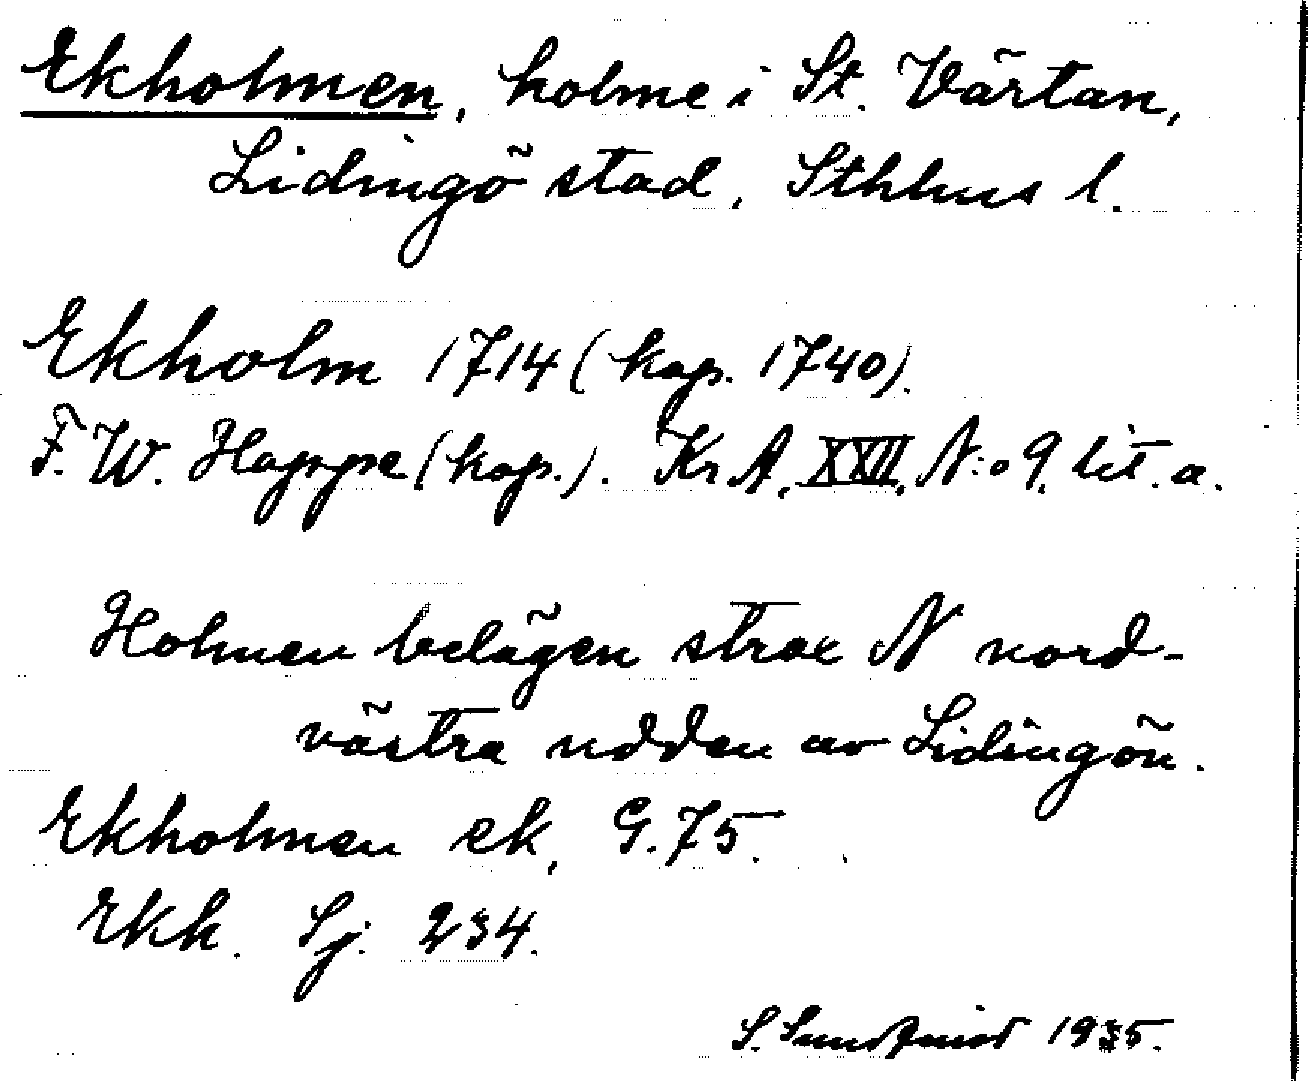 Ekholmen, holme i St. Värtan,
Lidingö stad, Sthlms l.
Ekholm 1714 (kop. 1740).
F. W. Hoppe (kop.). KrA, XXII, N:o 9, lit. a.
Holmen belägen strax N nord-
västra udden av Lidingön.
Ekholmen ek, G. 75.
Ekh. Sj. 234.
S. Sundqvist 1935.